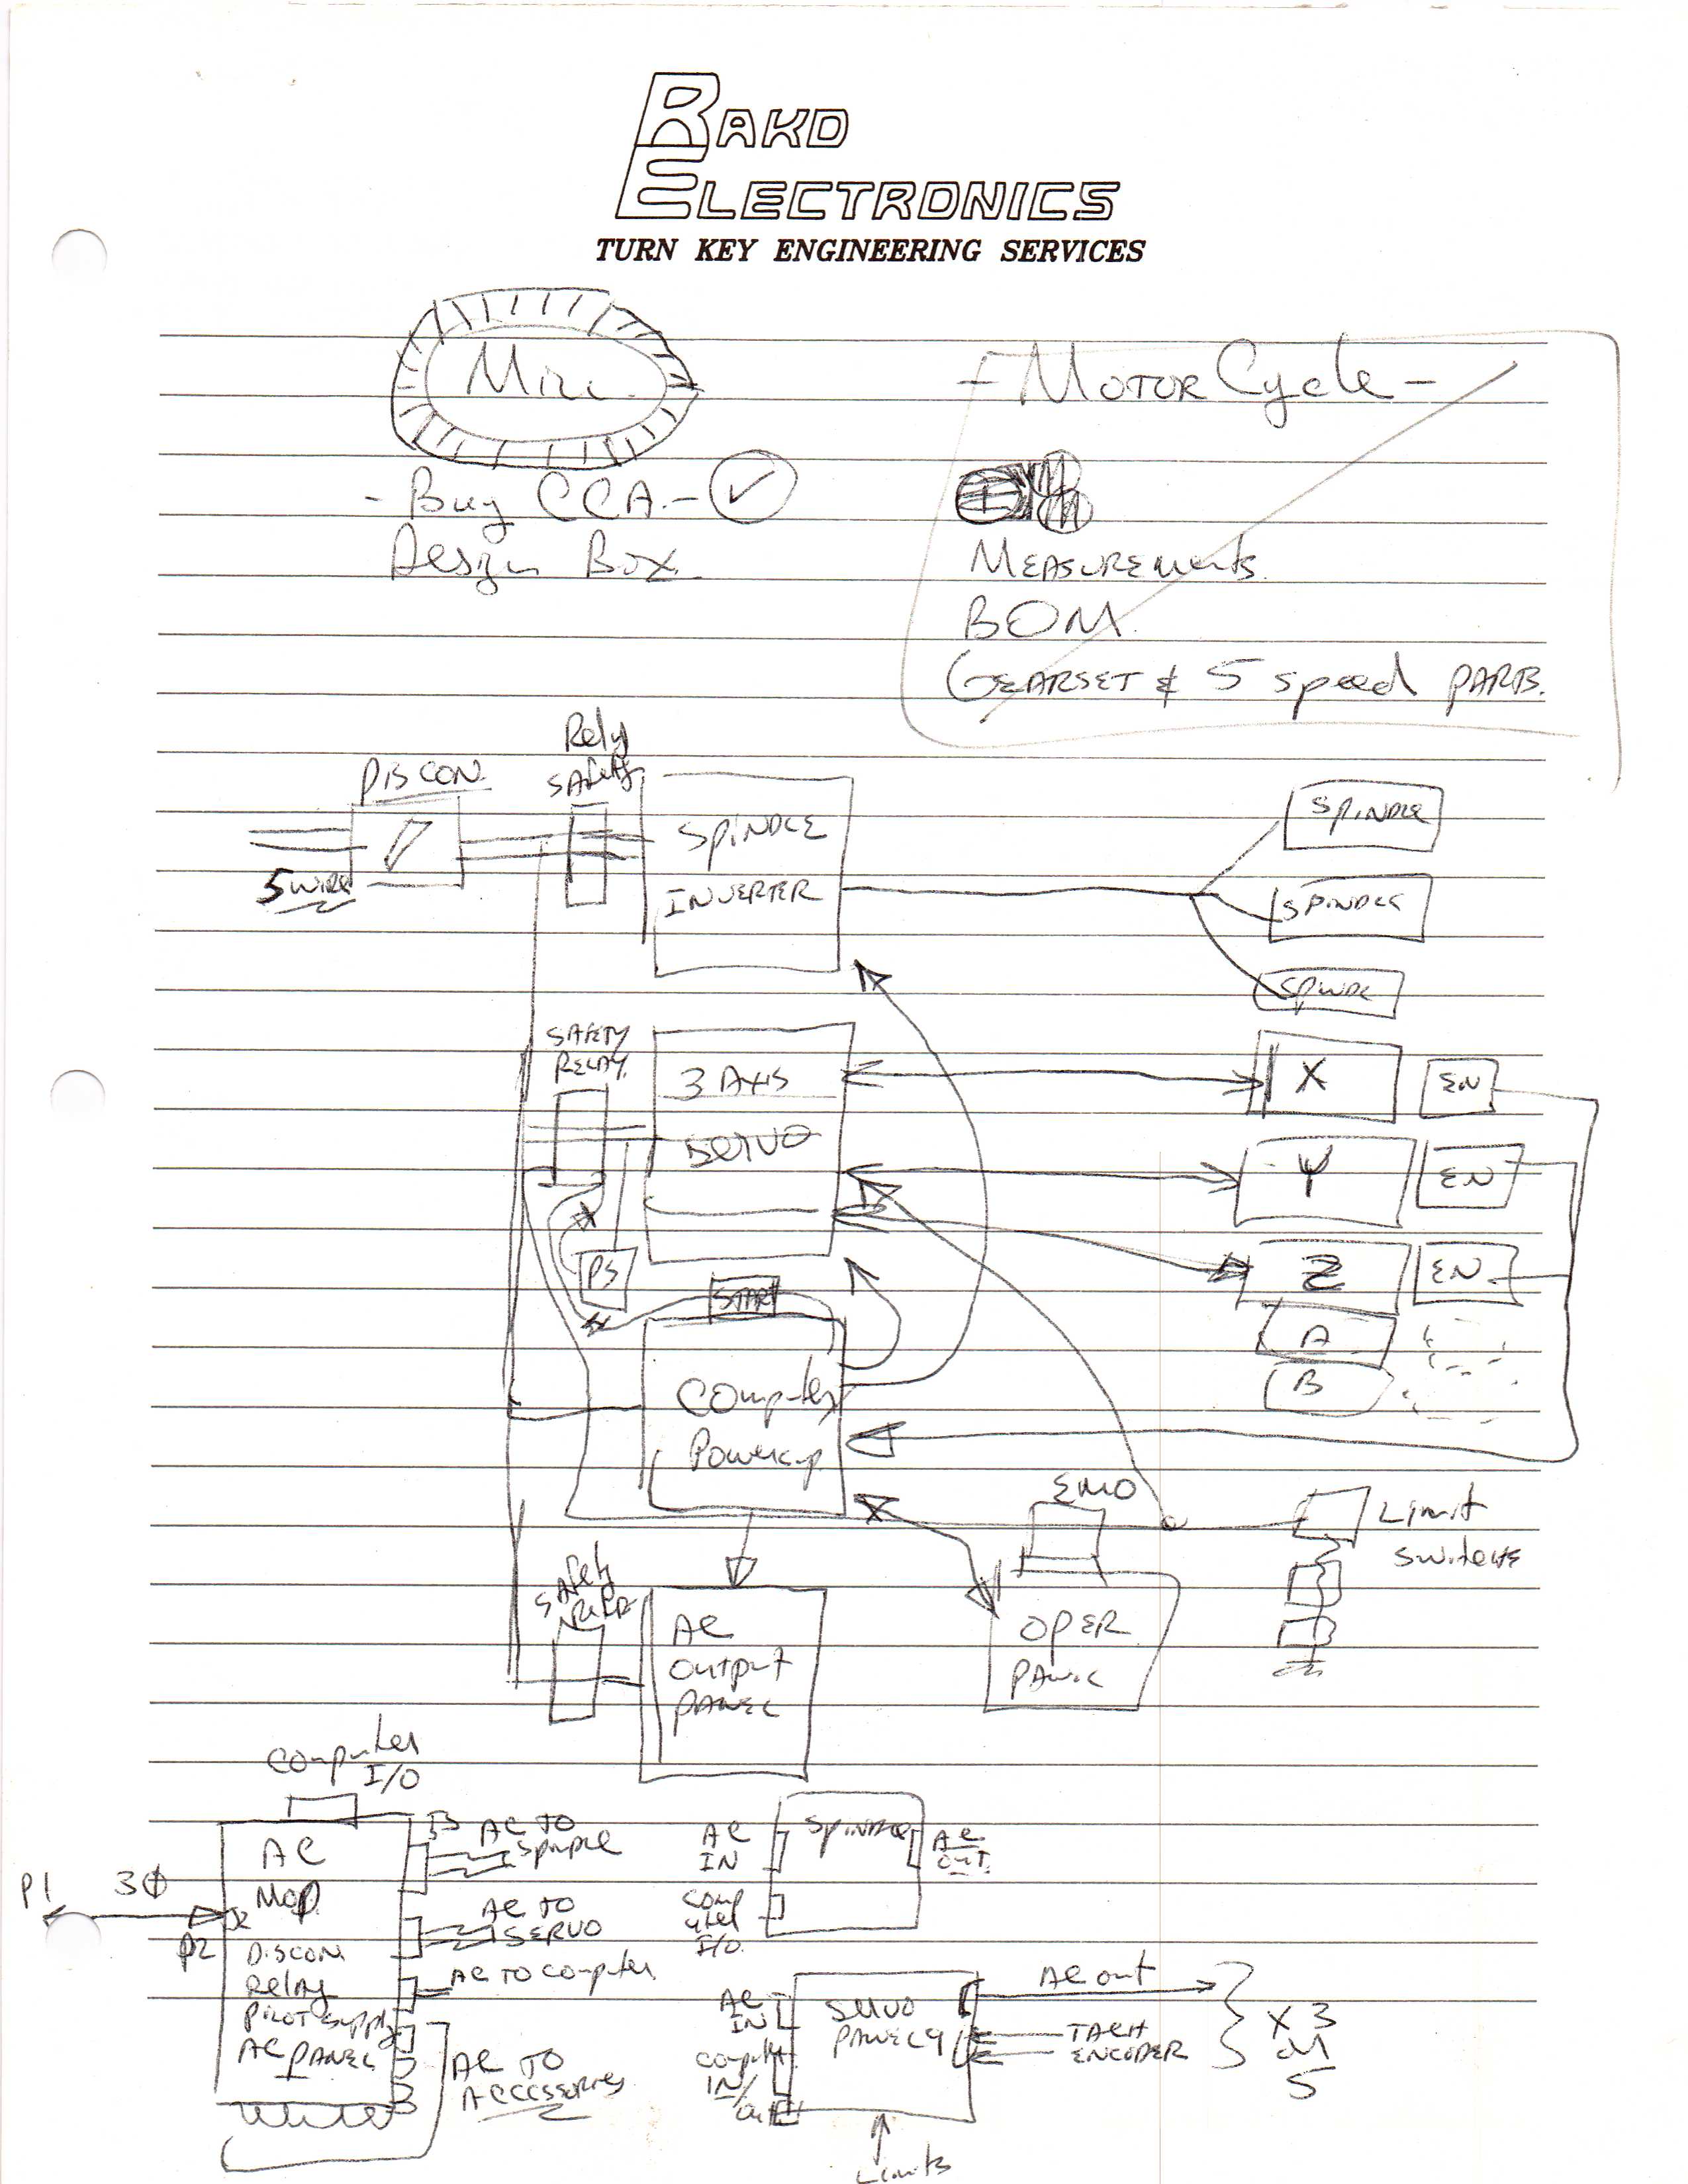 RAKD
ELECTRONICS
TURN KEY ENGINEERING SERVICES
Mill
- MOTORCycle -
- Buy CCA -
Design Box
MEASUREMENTS
BOM
GEARSET & 5 speed
DISCON.
Rely
SAfety
5 WIRE
SPINDLE
INVERTER
SPINDLE
SPINDLE
SPINDL
SAFETY
RELAY
3 AXIS
SERVO
X
EN
Y
EN
Z
EN
PS
START
A
B
Computer
Powerup
EMO
Limit
SAfety
AC
OUTPUT
PANEL
OPER
PANEL
Computer
I/O
P1
3Ø
P2
AC
DISCON
Relay
PILOT Supply
AC PANEL
AC TO
SPINDLE
AC TO
SERVO
AC TO computer
AC TO
ACCESSORIES
AC
IN
SPINDLE
AC
OUT
Comp
uter
I/O
AC
IN
SERVO
Computer
IN/
Out
AC out
TACH
ENCODER
X 3
5
Limits